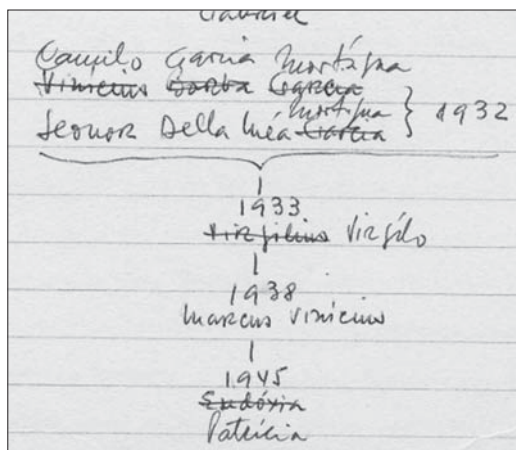 Gabriel
Camilo Garcia Mortágua
Vinicius Borba Garcia
Mortágua
Leonor Della Méa Garcia } 1932
1933
Virgilius Virgílo
1938
Marcus Vinicius
1945
Eudóxia
Patrícia